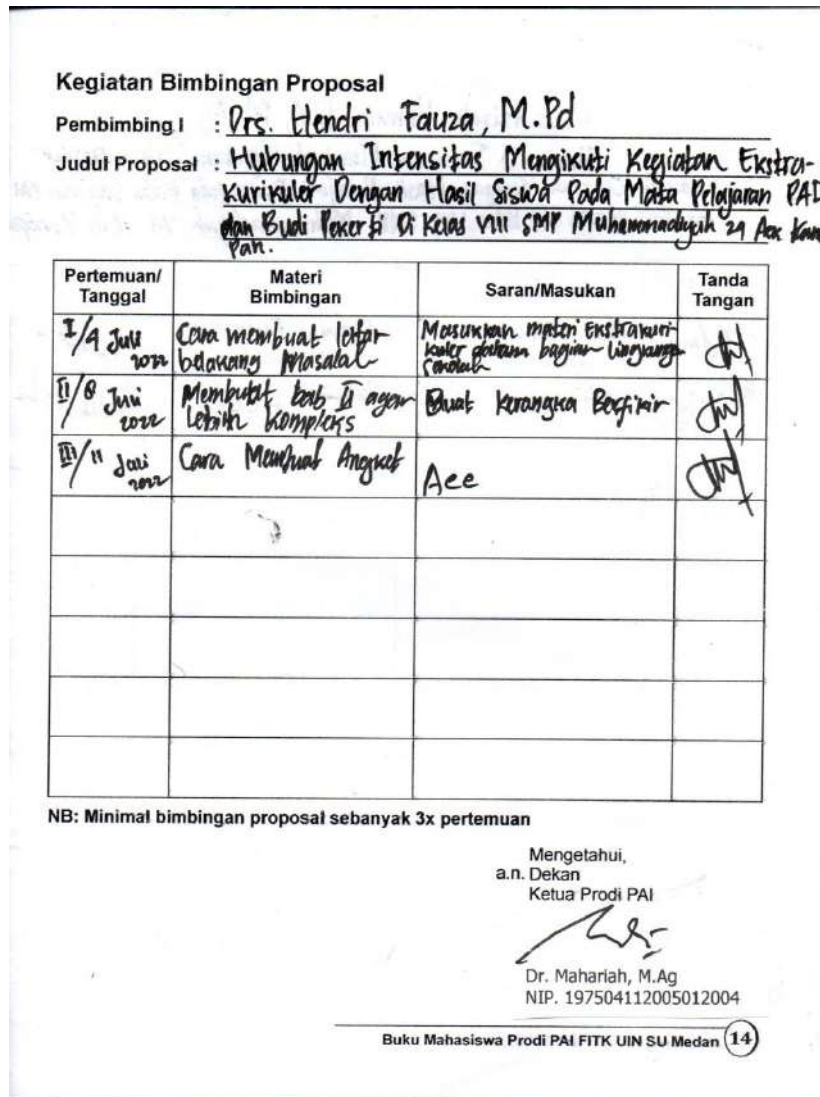 Kegiatan Bimbingan Proposal
Pembimbing I : Drs. Hendri Fauza, M.Pd
Judul Proposal : Hubungan Intensitas Mengikuti Kegiatan Ekstra-
Kurikuler Dengan Hasil Siswa Pada Mata Pelajaran PAI
dan Budi Pekerti Di Kelas VIII SMP Muhammadiyah 29 Aek Kano
Pan.
Pertemuan/ Tanggal
Materi Bimbingan
Saran/Masukan
Tanda Tangan
I/4 Juli 2022
Cara membuat latar belakang Masalah
Masukkan materi Ekstrakurikuler dalam bagian lingkungan sekolah
II/8 Juni 2022
Membuat bab II agar Lebih Kompleks
Buat Kerangka Berfikir
III/11 Juli 2022
Cara Membuat Angket
Acc
NB: Minimal bimbingan proposal sebanyak 3x pertemuan
Mengetahui,
a.n. Dekan
Ketua Prodi PAI
Dr. Mahariah, M.Ag
NIP. 197504112005012004
Buku Mahasiswa Prodi PAI FITK UIN SU Medan 14